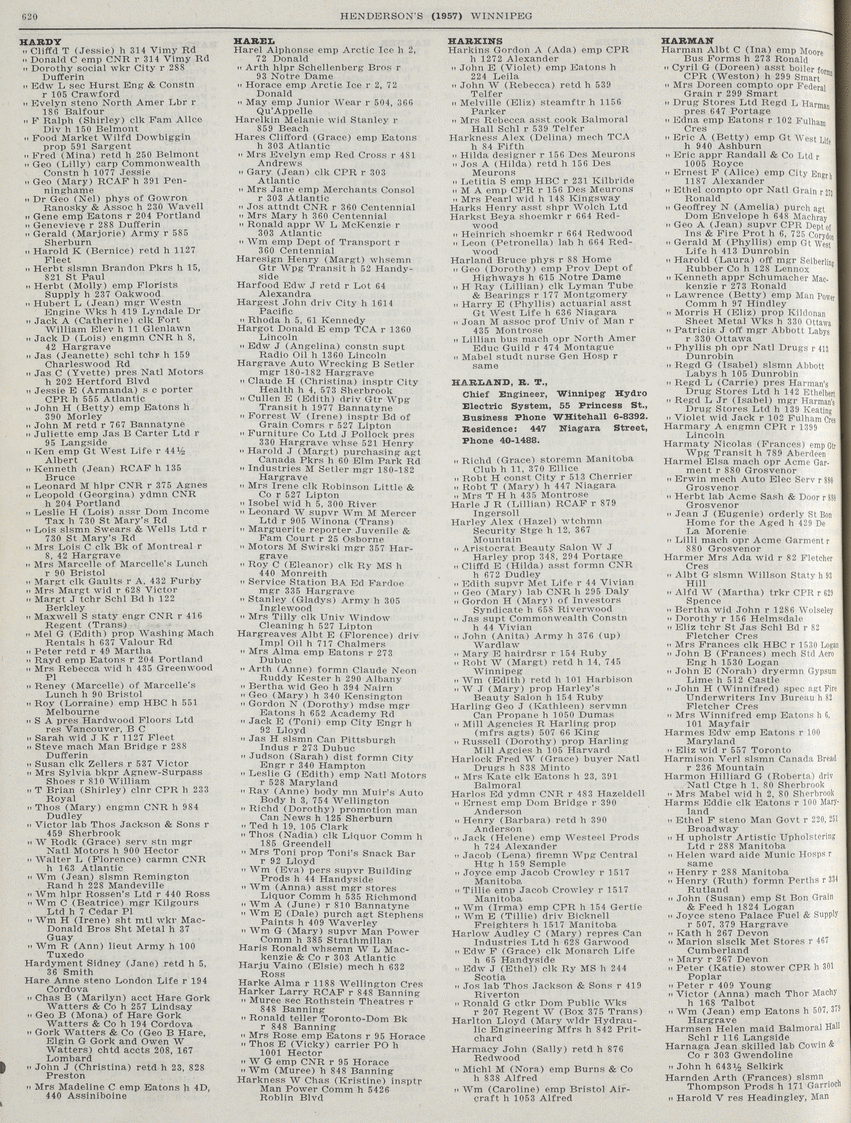 620
HENDERSON'S (1957) WINNIPEG
HARDY
" Cliffd T (Jessie) h 314 Vimy Rd
" Donald C emp CNR r 314 Vimy Rd
" Dorothy social wkr City r 288
Dufferin
" Edw L sec Hurst Eng & Constn
r 105 Crawford
" Evelyn steno North Amer Lbr r
186 Balfour
" F Ralph (Shirley) clk Fam Allce
Div h 150 Belmont
" Food Market Wilfd Dowbiggin
prop 591 Sargent
" Fred (Mina) retd h 250 Belmont
" Geo (Lilly) carp Commonwealth
Constn h 1077 Jessie
" Geo (Mary) RCAF h 391 Pen-
ninghame
" Dr Geo (Nel) phys of Gowron
Ranosky & Assoc h 230 Wavell
" Gene emp Eatons r 204 Portland
" Genevieve r 288 Dufferin
" Gerald (Marjorie) Army r 585
Sherburn
" Harold K (Bernice) retd h 1127
Fleet
" Herbt slsmn Brandon Pkrs h 15,
821 St Paul
" Herbt (Molly) emp Florists
Supply h 237 Oakwood
" Hubert L (Jean) mgr Westn
Engine Wks h 419 Lyndale Dr
" Jack A (Catherine) clk Fort
William Elev h 11 Glenlawn
" Jack D (Lois) engmn CNR h 8,
42 Hargrave
" Jas (Jeanette) schl tchr h 159
Charleswood Rd
" Jas C (Yvette) pres Natl Motors
h 202 Hertford Blvd
" Jessie E (Armanda) s c porter
CPR h 555 Atlantic
" John H (Betty) emp Eatons h
390 Morley
" John M retd r 767 Bannatyne
" Juliette emp Jas B Carter Ltd r
95 Langside
" Ken emp Gt West Life r 44½
Albert
" Kenneth (Jean) RCAF h 135
Bruce
" Leonard M hlpr CNR r 375 Agnes
" Leopold (Georgina) ydmn CNR
h 204 Portland
" Leslie H (Lois) assr Dom Income
Tax h 730 St Mary's Rd
" Lois slsmn Swears & Wells Ltd r
730 St Mary's Rd
" Mrs Lois C clk Bk of Montreal r
8, 42 Hargrave
" Mrs Marcelle of Marcelle's Lunch
r 90 Bristol
" Margt clk Gaults r A, 432 Furby
" Mrs Margt wid r 628 Victor
" Margt J tchr Schl Bd h 122
Berkley
" Maxwell S staty engr CNR r 416
Regent (Trans)
" Mel G (Edith) prop Washing Mach
Rentals h 637 Valour Rd
" Peter retd r 49 Martha
" Rayd emp Eatons r 204 Portland
" Mrs Rebecca wid h 435 Greenwood
Pl
" Reney (Marcelle) of Marcelle's
Lunch h 90 Bristol
" Roy (Lorraine) emp HBC h 551
Melbourne
" S A pres Hardwood Floors Ltd
res Vancouver, B C
" Sarah wid J K r 1127 Fleet
" Steve mach Man Bridge r 288
Dufferin
" Susan clk Zellers r 537 Victor
" Mrs Sylvia bkpr Agnew-Surpass
Shoes r 810 William
" T Brian (Shirley) clnr CPR h 233
Royal
" Thos (Mary) engmn CNR h 984
Dudley
" Victor lab Thos Jackson & Sons r
459 Sherbrook
" W Rodk (Grace) serv stn mgr
Natl Motors h 900 Hector
" Walter L (Florence) carmn CNR
h 163 Atlantic
" Wm (Jean) slsmn Remington
Rand h 228 Mandeville
" Wm hlpr Rossen's Ltd r 440 Ross
" Wm C (Beatrice) mgr Kilgours
Ltd h 7 Cedar Pl
" Wm H (Irene) sht mtl wkr Mac-
Donald Bros Sht Metal h 37
Guay
" Wm R (Ann) lieut Army h 100
Tuxedo
Hardyment Sidney (Jane) retd h 5,
36 Smith
Hare Anne steno London Life r 194
Cordova
" Chas B (Marilyn) acct Hare Gork
Watters & Co h 257 Lindsay
" Geo B (Mona) of Hare Gork
Watters & Co h 194 Cordova
" Gork Watters & Co (Geo B Hare,
Elgin G Gork and Owen W
Watters) chtd accts 208, 167
Lombard
" John J (Christina) retd h 23, 828
Preston
" Mrs Madeline C emp Eatons h 4D,
440 Assiniboine
HAREL
Harel Alphonse emp Arctic Ice h 2,
72 Donald
" Arth hlpr Schellenberg Bros r
93 Notre Dame
" Horace emp Arctic Ice r 2, 72
Donald
" May emp Junior Wear r 504, 366
Qu'Appelle
Harelkin Melanie wid Stanley r
859 Beach
Hares Clifford (Grace) emp Eatons
h 303 Atlantic
" Mrs Evelyn emp Red Cross r 481
Andrews
" Gary (Jean) clk CPR r 303
Atlantic
" Mrs Jane emp Merchants Consol
r 303 Atlantic
" Jos attdnt CNR r 360 Centennial
" Mrs Mary h 360 Centennial
" Ronald appr W L McKenzie r
303 Atlantic
" Wm emp Dept of Transport r
360 Centennial
Haresign Henry (Margt) whsemn
Gtr Wpg Transit h 52 Handy-
side
Harfood Edw J retd r Lot 64
Alexandra
Hargest John driv City h 1614
Pacific
" Rhoda h 5, 61 Kennedy
Hargot Donald E emp TCA r 1360
Lincoln
" Edw J (Angelina) constn supt
Radio Oil h 1360 Lincoln
Hargrave Auto Wrecking B Setler
mgr 180-182 Hargrave
" Claude H (Christina) insptr City
Health h 4, 573 Sherbrook
" Cullen E (Edith) driv Gtr Wpg
Transit h 1977 Bannatyne
" Forrest W (Irene) insptr Bd of
Grain Comrs r 527 Lipton
" Furniture Co Ltd J Pollock pres
330 Hargrave whse 521 Henry
" Harold J (Margt) purchasing agt
Canada Pkrs h 60 Elm Park Rd
" Industries M Setler mgr 180-182
Hargrave
" Mrs Irene clk Robinson Little &
Co r 527 Lipton
" Isobel wid h 5, 300 River
" Leonard W supvr Wm M Mercer
Ltd r 905 Winona (Trans)
" Marguerite reporter Juvenile &
Fam Court r 25 Osborne
" Motors M Swirski mgr 357 Har-
grave
" Roy C (Eleanor) clk Ry MS h
440 Monreith
" Service Station BA Ed Fardoe
mgr 335 Hargrave
" Stanley (Gladys) Army h 305
Inglewood
" Mrs Tilly clk Univ Window
Cleaning h 527 Lipton
Hargreaves Albt E (Florence) driv
Impl Oil h 717 Chalmers
" Mrs Alma emp Eatons r 273
Dubuc
" Arth (Anne) formn Claude Neon
Ruddy Kester h 290 Albany
" Bertha wid Geo h 394 Nairn
" Geo (Mary) h 340 Kensington
" Gordon N (Dorothy) mdse mgr
Eatons h 652 Academy Rd
" Jack E (Toni) emp City Engr h
92 Lloyd
" Jas H slsmn Can Pittsburgh
Indus r 273 Dubuc
" Judson (Sarah) dist formn City
Engr r 340 Hampton
" Leslie G (Edith) emp Natl Motors
r 528 Maryland
" Ray (Anne) body mn Muir's Auto
Body h 3, 754 Wellington
" Richd (Dorothy) promotion man
Can News h 125 Sherburn
" Ted h 19, 105 Clark
" Thos (Nadia) clk Liquor Comm h
185 Greendell
" Mrs Toni prop Toni's Snack Bar
r 92 Lloyd
" Wm (Eva) pers supvr Building
Prods h 44 Handyside
" Wm (Anna) asst mgr stores
Liquor Comm h 535 Richmond
" Wm A (June) r 810 Bannatyne
" Wm E (Dale) purch agt Stephens
Paints h 409 Waverley
" Wm G (Mary) supvr Man Power
Comm h 385 Strathmillan
Haris Ronald whsemn W L Mac-
kenzie & Co r 303 Atlantic
Harju Vaino (Elsie) mech h 632
Ross
Harke Alma r 1188 Wellington Cres
Harker Larry RCAF r 848 Banning
" Muree sec Rothstein Theatres r
848 Banning
" Ronald teller Toronto-Dom Bk
r 848 Banning
" Mrs Rose emp Eatons r 95 Horace
" Thos E (Vicky) carrier PO h
1001 Hector
" W G emp CNR r 95 Horace
" Wm (Muree) h 848 Banning
Harkness W Chas (Kristine) insptr
Man Power Comm h 5426
Roblin Blvd
HARKINS
Harkins Gordon A (Ada) emp CPR
h 1272 Alexander
" John E (Violet) emp Eatons h
224 Leila
" John W (Rebecca) retd h 539
Telfer
" Melville (Eliz) steamftr h 1156
Parker
" Mrs Rebecca asst cook Balmoral
Hall Schl r 539 Telfer
Harkness Alex (Delina) mech TCA
h 84 Fifth
" Hilda designer r 156 Des Meurons
" Jos A (Hilda) retd h 156 Des
Meurons
" Letitia S emp HBC r 231 Kilbride
" M A emp CPR r 156 Des Meurons
" Mrs Pearl wid h 148 Kingsway
Harks Henry asst shpr Wolch Ltd
Harkst Beya shoemkr r 664 Red-
wood
" Heinrich shoemkr r 664 Redwood
" Leon (Petronella) lab h 664 Red-
wood
Harland Bruce phys r 88 Home
" Geo (Dorothy) emp Prov Dept of
Highways h 615 Notre Dame
" H Ray (Lillian) clk Lyman Tube
& Bearings r 177 Montgomery
" Harry E (Phyllis) actuarial asst
Gt West Life h 636 Niagara
" Joan M assoc prof Univ of Man r
435 Montrose
" Lillian bus mach opr North Amer
Educ Guild r 474 Montague
" Mabel studt nurse Gen Hosp r
same
HARLAND, R. T.,
Chief Engineer, Winnipeg Hydro
Electric System, 55 Princess St.,
Business Phone WHitehall 6-8392.
Residence: 447 Niagara Street,
Phone 40-1488.
" Richd (Grace) storemn Manitoba
Club h 11, 370 Ellice
" Robt H const City r 513 Cherrier
" Robt T (Mary) h 447 Niagara
" Mrs T H h 435 Montrose
Harle J R (Lillian) RCAF r 879
Ingersoll
Harley Alex (Hazel) wtchmn
Security Stge h 12, 367
Mountain
" Aristocrat Beauty Salon W J
Harley prop 348, 294 Portage
" Cliffd E (Hilda) asst formn CNR
h 672 Dudley
" Edith supvr Met Life r 44 Vivian
" Geo (Mary) lab CNR h 295 Daly
" Gordon H (Mary) of Investors
Syndicate h 658 Riverwood
" Jas supt Commonwealth Constn
h 44 Vivian
" John (Anita) Army h 376 (up)
Wardlaw
" Mary E hairdrsr r 154 Ruby
" Robt W (Margt) retd h 14, 745
Winnipeg
" Wm (Edith) retd h 101 Harbison
" W J (Mary) prop Harley's
Beauty Salon h 154 Ruby
Harling Geo J (Kathleen) servmn
Can Propane h 1050 Dumas
" Mill Agencies R Harling prop
(mfrs agts) 507 66 King
" Russell (Dorothy) prop Harling
Mill Agcies h 105 Harvard
Harlock Fred W (Grace) buyer Natl
Drugs h 838 Minto
" Mrs Kate clk Eatons h 23, 391
Balmoral
Harlos Ed ydmn CNR r 483 Hazeldell
" Ernest emp Dom Bridge r 390
Anderson
" Henry (Barbara) retd h 390
Anderson
" Jack (Helene) emp Westeel Prods
h 724 Alexander
" Jacob (Lena) firemn Wpg Central
Htg h 159 Semple
" Joyce emp Jacob Crowley r 1517
Manitoba
" Tillie emp Jacob Crowley r 1517
Manitoba
" Wm (Irma) emp CPR h 154 Gertie
" Wm E (Tillie) driv Bicknell
Freighters h 1517 Manitoba
Harlow Audley C (Mary) repres Can
Industries Ltd h 628 Garwood
" Edw F (Grace) clk Monarch Life
h 65 Handyside
" Edw J (Ethel) clk Ry MS h 244
Scotia
" Jos lab Thos Jackson & Sons r 419
Riverton
" Ronald G ctkr Dom Public Wks
r 207 Regent W (Box 375 Trans)
Harlton Lloyd (Mary wldr Hydrau-
lic Engineering Mfrs h 842 Prit-
chard
Harmacy John (Sally) retd h 876
Redwood
" Michl M (Nora) emp Burns & Co
h 838 Alfred
" Wm (Caroline) emp Bristol Air-
craft h 1053 Alfred
HARMAN
Harman Albt C (Ina) emp Moore
Bus Forms h 273 Ronald
" Cyril G (Doreen) asst boiler form
CPR (Weston) h 299 Smart
" Mrs Doreen compto opr Federal
Grain r 299 Smart
" Drug Stores Ltd Regd L Harman
pres 647 Portage
" Edna emp Eatons r 102 Fulham
Cres
" Eric A (Betty) emp Gt West Life
h 940 Ashburn
" Eric appr Randall & Co Ltd r
1005 Royce
" Ernest F (Alice) emp City Engr h
1187 Alexander
" Ethel compto opr Natl Grain r 273
Ronald
" Geoffrey N (Amelia) purch agt
Dom Envelope h 648 Machray
" Geo A (Jean) supvr CPR Dept of
Ins & Fire Prot h 6, 725 Corydon
" Gerald M (Phyllis) emp Gt West
Life h 413 Dunrobin
" Harold (Laura) off mgr Seiberling
Rubber Co h 128 Lennox
" Kenneth appr Schumacher Mac-
kenzie r 273 Ronald
" Lawrence (Betty) emp Man Power
Comm h 97 Hindley
" Morris H (Eliz) prop Kildonan
Sheet Metal Wks h 330 Ottawa
" Patricia J off mgr Abbott Labys
r 330 Ottawa
" Phyllis ph opr Natl Drugs r 413
Dunrobin
" Regd G (Isabel) slsmn Abbott
Labys h 105 Dunrobin
" Regd L (Carrie) pres Harman's
Drug Stores Ltd h 142 Ethelbert
" Regd L Jr (Isabel) mgr Harman's
Drug Stores Ltd h 139 Keating
" Violet wid Jack r 102 Fulham Cres
Harmary A engmn CPR r 1399
Lincoln
Harmaty Nicolas (Frances) emp Gtr
Wpg Transit h 789 Aberdeen
Harmel Elsa mach opr Acme Gar-
ment r 880 Grosvenor
" Erwin mech Auto Elec Serv r 880
Grosvenor
" Herbt lab Acme Sash & Door r 880
Grosvenor
" Jean J (Eugenie) orderly St Bon
Home for the Aged h 429 De
La Morenie
" Lilli mach opr Acme Garment r
880 Grosvenor
Harmer Mrs Ada wid r 82 Fletcher
Cres
" Albt G slsmn Willson Staty h 93
Hill
" Alfd W (Martha) trkr CPR r 629
Spence
" Bertha wid John r 1286 Wolseley
" Dorothy r 156 Helmsdale
" Eliz tchr St Jas Schl Bd r 82
Fletcher Cres
" Mrs Frances clk HBC r 1530 Logan
" John B (Frances) mech Std Aero
Eng h 1530 Logan
" John E (Norah) dryermn Gypsum
Lime h 512 Castle
" John H (Winnifred) spec agt Fire
Underwriters Inv Bureau h 82
Fletcher Cres
" Mrs Winnifred emp Eatons h 6,
101 Mayfair
Harmes Edw emp Eatons r 100
Maryland
" Eliz wid r 557 Toronto
Harmison Verl slsmn Canada Bread
r 236 Mountain
Harmon Hilliard G (Roberta) driv
Natl Ctge h 1, 80 Sherbrook
" Mrs Mabel wid h 2, 80 Sherbrook
Harms Eddie clk Eatons r 100 Mary-
land
" Ethel P steno Man Govt r 220, 251
Broadway
" H upholstr Artistic Upholstering
Ltd r 288 Manitoba
" Helen ward aide Munic Hosps r
same
" Henry r 288 Manitoba
" Henry (Ruth) formn Perths r 334
Rutland
" John (Susan) emp St Bon Grain
& Feed h 1824 Logan
" Joyce steno Palace Fuel & Supply
r 507, 379 Hargrave
" Kath r 267 Devon
" Marion slsclk Met Stores r 467
Cumberland
" Mary r 267 Devon
" Peter (Katie) stower CPR h 301
Poplar
" Peter r 409 Young
" Victor (Anna) mach Thor Machy
h 168 Talbot
" Wm (Jean) emp Eatons h 507, 379
Hargrave
Harmsen Helen maid Balmoral Hall
Schl r 116 Langside
Harnaga Jean skilled lab Cowin &
Co r 303 Gwendoline
" John h 643½ Selkirk
Harnden Arth (Frances) slsmn
Thompson Prods h 171 Garrioch
" Harold V res Headingley, Man